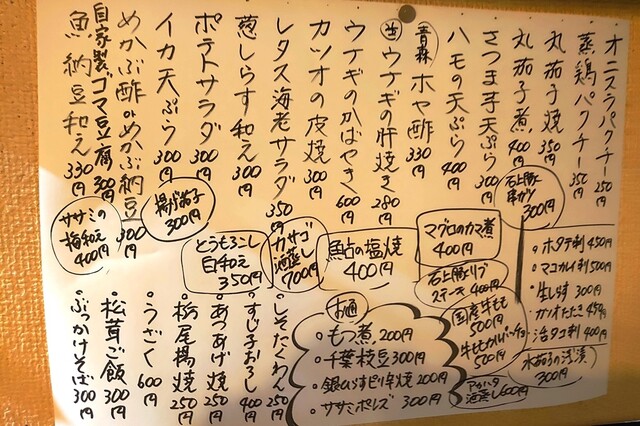 オニスラパクチー 250円
蒸鶏パクチー 350円
丸茄子焼 350円
丸茄子煮 400円
さつま芋天ぷら 300円
ハモの天ぷら 400円
青森 ホヤ酢 330円
ウナギの肝焼き 280円
ウナギのかばやき 600円
カツオの皮焼 300円
レタス海老サラダ 350円
葱しらす和え 300円
ポテトサラダ 300円
イカ天ぷら 300円
めかぶ酢orめかぶ納豆 300円
自家製ゴマ豆腐 300円
魚納豆和え 330円
石上豚串カツ 300円
マグロのカマ煮
400円
石上豚リブ
ステーキ 400円
国産牛もも
500円
牛ももカルパッチョ
500円
アカハタ
酒蒸し 600円
鮎の塩焼
400円
カサゴ
酒蒸し
700円
とうもろこし
白和え
350円
揚げ茄子
300円
ササミの
梅和え
400円
・ホタテ刺 450円
・マコガレイ刺 500円
・生しらす 300円
・カツオたたき 450円
・活タコ刺 400円
水茄子の浅漬
300円
お通
・もつ煮 200円
・千葉枝豆 300円
・銀ひらすピリ辛焼 200円
・ササミポレズ 300円
・しそたくわん 250円
・すじ子おろし 400円
・あつあげ焼 250円
・栃尾揚焼 250円
・うざく 600円
・松茸ご飯 300円
・ぶっかけそば 300円